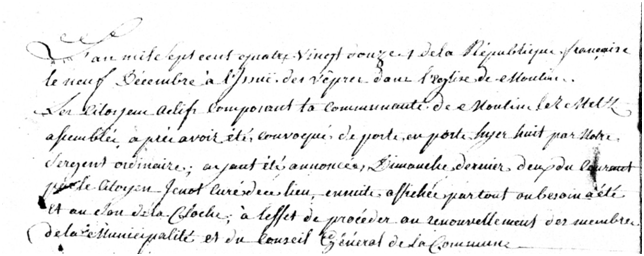 L'an mile sept cent quatre Vingt douze et de la République française
le neuf Décembre à l'Issuë des vêpres dans l'eglise de Moulin
Les Citoyens actifs composant la Communauté de Moulin Lez Metz
assemblée, après avoir été convoqué de porte en porte hyer huit par Notre
Sergent ordinaire; ayant été annoncée, Dimanche dernier deux du Courant
par le Citoyen Jenot Curé de ce lieu, ensuite affichée partout ou besoin a été
et au son de la Cloche; à l'effet de procéder au renouvellement des membres
de la Municipalité et du Conseil Général de la Commune